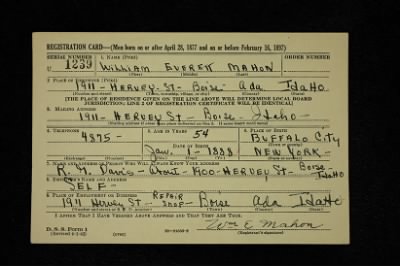 REGISTRATION CARD—(Men born on or after April 28, 1877 and on or before February 16, 1897)
SERIAL NUMBER 1. NAME (Print) ORDER NUMBER
U 1239 WILLIAM EVERETT MAHON
(First) (Middle) (Last)
2. PLACE OF RESIDENCE (Print)
1911 - HERVEY - St - BOISE ADA IDAHO
(Number and street) (Town, township, village, or city) (County) (State)
[THE PLACE OF RESIDENCE GIVEN ON THE LINE ABOVE WILL DETERMINE LOCAL BOARD
JURISDICTION; LINE 2 OF REGISTRATION CERTIFICATE WILL BE IDENTICAL]
3. MAILING ADDRESS
1911 - HERVEY St - Boise - Idaho -
[Mailing address if other than place indicated on line 2. If same insert word same]
4. TELEPHONE 5. AGE IN YEARS 6. PLACE OF BIRTH
4375 - 54 BUFFALO City
DATE OF BIRTH (Town or county)
Jan. 1 - 1888 NEW YORK -
(Mo.) (Day) (Yr.) (State or country)
7. NAME AND ADDRESS OF PERSON WHO WILL ALWAYS KNOW YOUR ADDRESS
R. M. Davis - 1400 - HERVEY St - Boise - IDAHO
8. EMPLOYER'S NAME AND ADDRESS
SELF -
9. PLACE OF EMPLOYMENT OR BUSINESS
1911 Hervey St - REPAIR SHOP - Boise Ada IDAHO
(Number and street or R. F. D. number) (Town) (County) (State)
I AFFIRM THAT I HAVE VERIFIED ABOVE ANSWERS AND THAT THEY ARE TRUE.
D. S. S. Form 1
(Revised 4-1-42) (over)
Wm E. Mahon
(Registrant's signature)